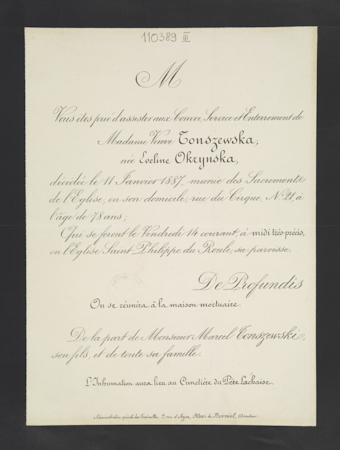 110389 III
M
Vous êtes prié d'assister aux Convoi, Service et Enterrement de
Madame Veuve Tonszewska,
née Eveline Okrynska,
décédée le 11 Janvier 1887, munie des Sacrements
de l'Eglise, en son domicile, rue du Cirque, N° 21, à
l'âge de 78 ans;
Qui se feront le Vendredi 14 courant, à midi très-précis,
en l'Eglise Saint Philippe du Roule, sa paroisse.
De Profundis
On se réunira à la maison mortuaire.
De la part de Monsieur Marcel Tonszewski,
son fils, et de toute sa famille.
L'Inhumation aura lieu au Cimetière du Père Lachaise.